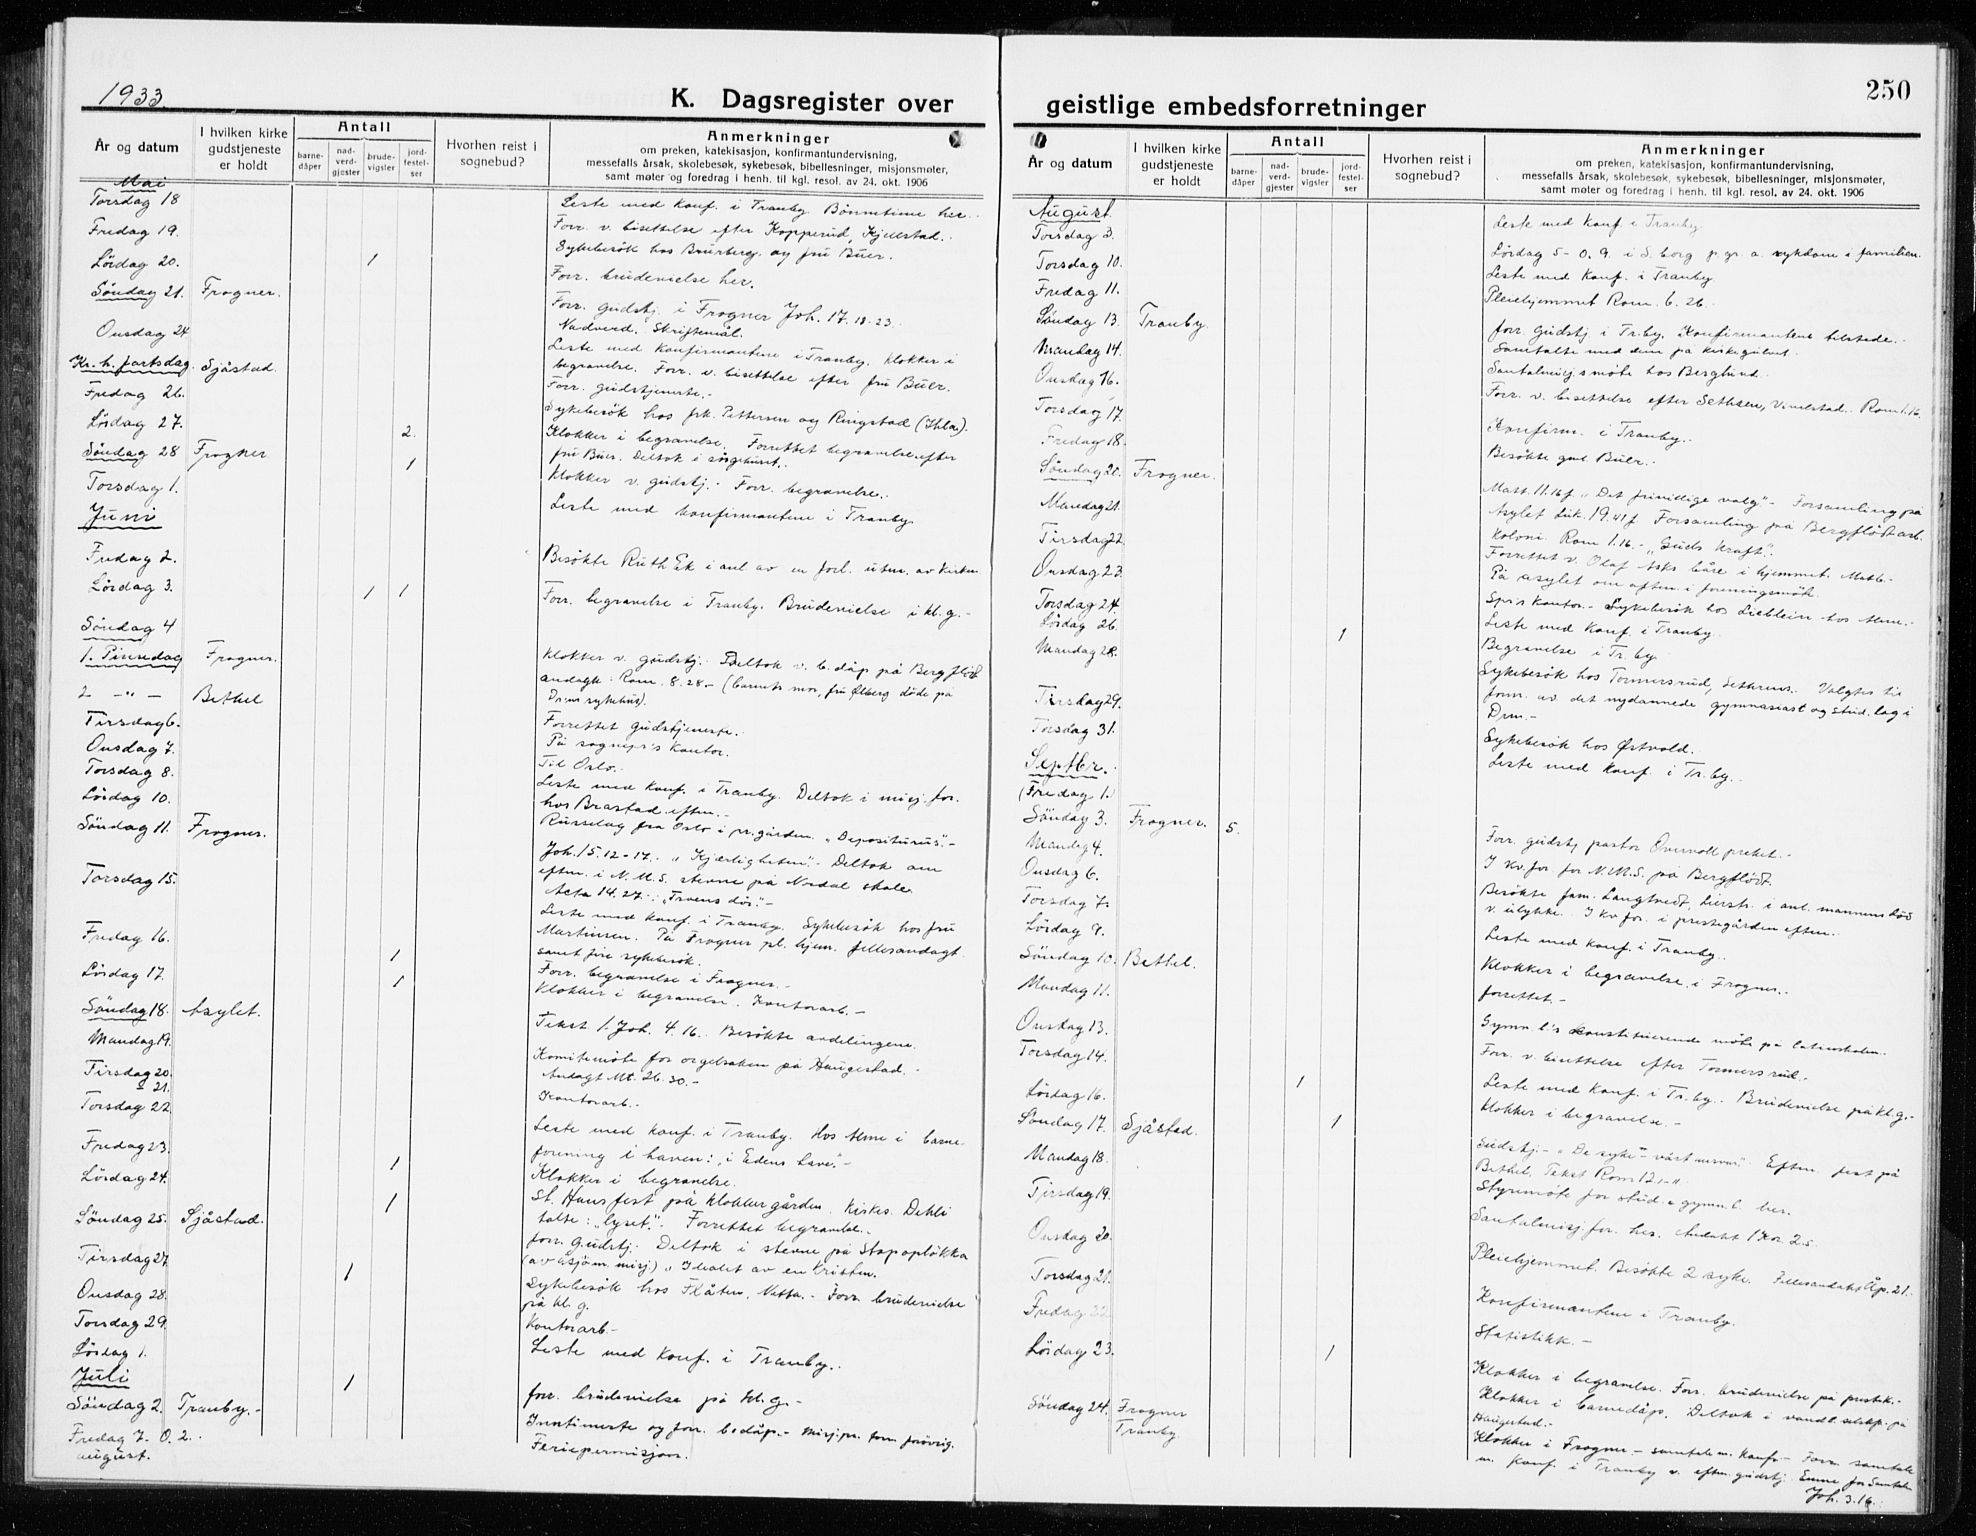 1933.
K. Dagsregister over
År og datum
I hvilken kirke gudstjeneste er holdt
Antall
barnedåper
nadverdgjester
brudevigsler
jordfestelser
Hvorhen reist i sognebud?
Anmerkninger
om preken, katekisasjon, konfirmantundervisning,
messefalls årsak, skolebesøk, sykebesøk, bibellesninger, misjonsmøter,
samt møter og foredrag i henh. til kgl. resol. av 24. okt. 1906
Mai
Torsdag 18
Fredag 19.
Lördag 20. 1
Söndag 21. Frogner.
Onsdag 24
Kr. h. fartsdag. Sjåstad.
Fredag 26.
Lördag 27. 2.
Söndag 28 Frogner 1
Torsdag 1.
Juni
Fredag 2.
Lördag 3. 1 1
Söndag 4
1. Pinsedag Frogner.
2 -"- - Bethel
Tirsdag 6.
Onsdag 7.
Torsdag 8.
Lördag 10.
Söndag 11. Frogner.
Torsdag 15.
Fredag 16. 1
Lördag 17. 1
Söndag 18. Asylet.
Mandag 19.
Tirsdag 20.
21.
Torsdag 22.
Fredag 23. 1
Lördag 24. 1
Söndag 25. Sjåstad.
Tirsdag 27. 1
Onsdag 28.
Torsdag 29.
Lördag 1.
Juli 1
Söndag 2. Tranby.-
Fredag 7. O. 2.
august.
Leste med konf. i Tranby. Bönnetime her.
Forr. v. bisettelse efter Kopperud, Kjellstad.
Sykebesök hos Brurberg og fru Buer.
Forr. brudevielse her.
Forr. gudstj. i Frogner Joh. 17. 18-23.
Nadverd. Skriftemål.
Leste med konfirmantene i Tranby. Klokker i
begravelse. Forr. v. bisettelse efter fru Buer.
Forr. gudstjeneste.-
Sykebesök hos frk. Pettersen og Ringstad
Klokker i begravelse. Forrettet begravelse efter
fru Buer. Deltok i sörgehuset.
Klokker v. gudstj. - Forr. begravelse.
Leste med konfirmantene i Tranby.
Besökte Ruth Ek i anl av en forl. utm. av kirken
Forr. begravelse i Tranby. Brudevielse i kl. g.-
Klokker v. gudstj. Deltok v. b. dåp på Bergflödt
andagt: Rom. 8. 28.- (barnets mor, fru Ölberg döde på
Drm sykehus).
Forrettet gudstjeneste.
På sognepr's kontor.
Til Oslo.
Leste med konf. i Tranby. Deltok i misj. for.
hos Brastad eftm.-
Russelag fra Oslo i pr.gården. "Depositurus".-
Joh. 15. 12-17. "Kjærligheten".- Deltok om
eftm. i N.M.S. stevne på Nordal skole.
Acta 14. 27.: "Troens dör."-
Leste med konf. i Tranby. Sykebesök hos fru
Martinsen. På Frogner pl. hjem. fellesandagt
samt fire sykebesök.
Forr. begravelse i Frogner.-
Klokker i begravelse. Kontorarb.-
Tekst 1. Joh. 4. 16. Besökte avdelingene.
Komitemöte for orgelsaken på Haugestad.-
Andagt Mt. 26. 30.-
Kontorarb.-
Leste med konf. i Tranby. Hos Alme i barne-
forening i haven: "i Edens have".-
Klokker i begravelse.
St. Hansfest på klokkergården. Kirkes. Dehli
talte: "lyset". Forrettet begravelse.
Forr. gudstj. Deltok i stevne på Stopoplökka
(av sjöm. misj.) "Idealet av en kristen.
Sykebesök hos Flåten, Vetta.- Forr. brudevielse
på kl. g.
Kontorarb.-
Leste med konf. i Tranby.
forr. brudevielse på kl. g.-
Inntimerte og forr. bedåp.- misj.pr. fore. forövrig.
Feriepermisjon.
geistlige embedsforretninger
250
År og datum
I hvilken kirke gudstjeneste er holdt
Antall
barnedåper
nadverdgjester
brudevigsler
jordfestelser
Hvorhen reist i sognebud?
Anmerkninger
om preken, katekisasjon, konfirmantundervisning,
messefalls årsak, skolebesøk, sykebesøk, bibellesninger, misjonsmøter,
samt møter og foredrag i henh. til kgl. resol. av 24. okt. 1906
August
Torsdag 3.
Torsdag 10.
Fredag 11.
Söndag 13. Tranby.
Mandag 14.
Onsdag 16.
Torsdag 17.
Fredag 18.
Söndag 20. Frogner.
Mandag 21.
Tirsdag 22
Onsdag 23.
Torsdag 24.
Lördag 26. 1
Mandag 28.
Tirsdag 29.
Torsdag 31.
Septbr.
(Fredag 1.)
Söndag 3. Frogner. 5.
Mandag 4.
Onsdag 6.
Torsdag 7.
Lördag 9.
Söndag 10. Bethel.
Mandag 11.
Onsdag 13.
Torsdag 14.
Lördag 16. 1
Söndag 17. Sjåstad. 1
Mandag 18.
Tirsdag 19.
Onsdag 20.
Torsdag 21.
Fredag 22
Lördag 23. 1
Söndag 24. Frogner
Tranby.
Leste med konf. i Tranby
Lördag 5- O. 9. i S. borg p. gr. a. sykdom i familien.
Leste med konf. i Tranby
Pleiehjemmet Rom. 6. 26.
forr. gudstj i Tr.by. Konfirmantene tilstede.-
Samtalte med dem på kirkegulvet.
Santalmisj.smöte hos Berglund.
Forr. v. bisettelse efter Sethsen, Vinelstad. Rom 1. 16.
Konfirm. i Tranby.
Besökte gml. Buer.
Matt. 11. 16 f. "Det frivillige valg".- Forsamling på
Asylet Luk. 19. 41 f Forsamling på Bergflödt arb.
koloni. Rom 1.16.- "Guds kraft".
Forrettet v. Olaf Asks båre i hjemmet.
På asylet om eftm. i foreningsmöte.
Spr's kontor.- Sykebesök hos Lieblein hos Alme.
Leste med konf. i Tranby.
Begravelse i Tr.by
Sykebesök hos Tormersrud, Sethrens. Valgtes til
form. av det nydannede gymnasiast og stud. lag i
Drm.-
Sykebesök hos Östvold.
Leste med konf. i Tr.by.
Forr. gudstj pastor Overvoll preket.-
I kv.for. for N.M.S. på Bergflödt.
Besökte fam. Langtvedt, Lierstr. i anl. mannens död
v. ulykke. I kv for. i prestegården eftm.
Leste med konf. i Tranby.
Klokker i begravelse i Frogner.
forrettet-
Gymn l's konstituerende möte på latinskolen.
Forr. v. bisettelse efter Tormersrud.-
Leste med konf. i Tr.by. Brudevielse på kl. g.-
Klokker i begravelse.-
Gudstj.- "De syke"- vårt ansvar". Eftm. fest på
Bethel. Tekst Rom 12 1-11
Styremöte for stud. & gymn.l. her.
Santalmisj.for. her. Andakt 1 Kor. 2.
Pleiehjemmet. Besökte 2 syke. Fellesandakt Åp. 21.
Konfirmantene i Tranby.
Statistikk.-
Klokker i begravelse. Forr. brudevielse på prestek.-
Klokker i barnedåp. Deltok i vandt selskp. på
Haugestad.-
Klokker i Frogner - samtale m. konf.- Forr. samtale
m. konf. i Tranby v. eftm. gudstj. Emne for Samtalen
Joh. 3. 16.